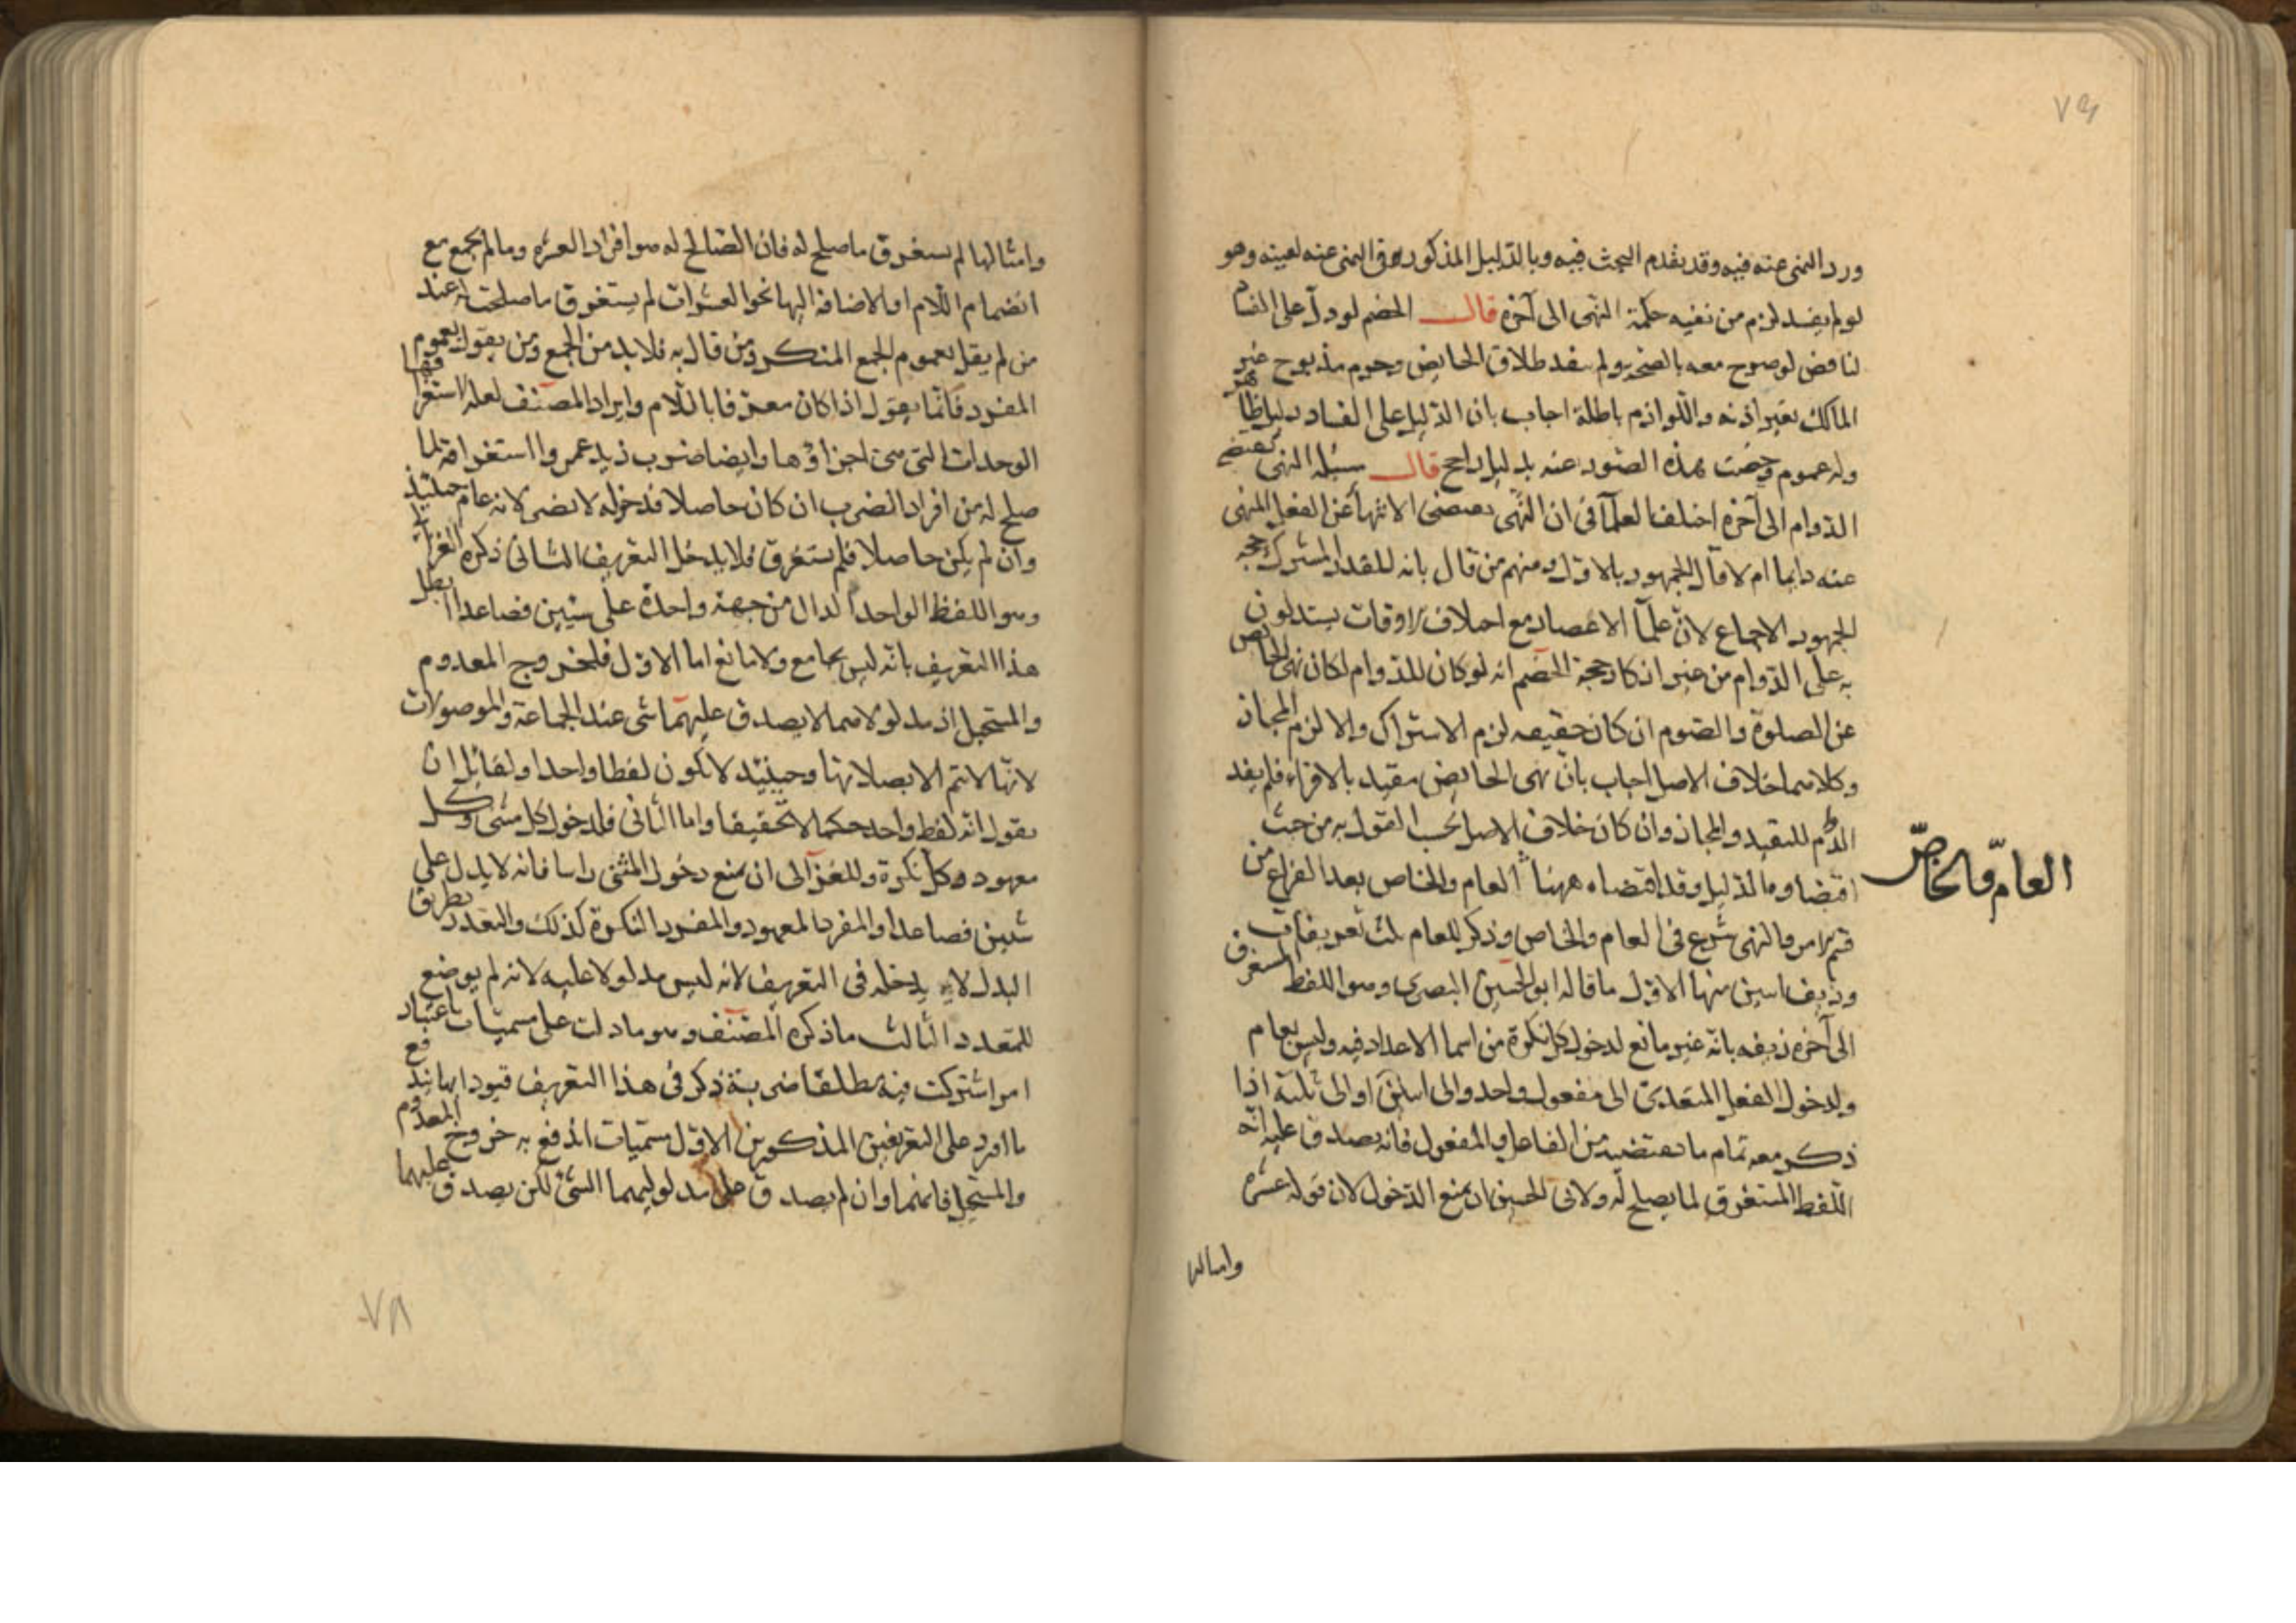 ورد النهى عنه فيه وقد تقدم البحث فيه وبالدليل المذكور وفى النهى عنه لعينه وهو
لو لم يفسد لزم من نفيه حكمة النهى الى آخره قال الخصم لو دل على الفساد
لناقض لو صرح معه بالصحة ولم ينفد طلاق الحايض وحرم مذبوح غير
المالك بغير اذنه واللوازم باطلة اجاب بان الدليل على الفساد دليل ظاهر
وله عموم وخصت هذه الصور عنه بدليل راجح قال مسئلة النهى يقتضى
الدوام الى آخره اختلف العلمآ فى ان النهى يقتضى الانتهآ عن الفعل المنهى
عنه دايما ام لا قال الجمهور بالاول ومنهم من قال بانه للقدر المشترك حجة
الجمهور الاجماع لان علمآ الاعصار مع اختلاف الاوقات يستدلون
به على الدوام من غير انكار حجة الخصم انه لو كان للدوام لكان نهى الحايض
عن الصلوة والصوم ان كان حقيقة لزم الاشتراك والا لزم المجاز
وكلاهما خلاف الاصل اجاب بان نهى الحايض مقيد بالاقراء فلم يفد
الدوام للتقييد والمجاز وان كان خلاف الاصل يجب القول به من حيث
اقتضاؤه الدليل وقد اقتضاه ههنا العام والخاص بعد الفراغ من
العامّ والخاصّ
قسم الامر والنهى شرع فى العام والخاص وذكر للعام ثلث تعريفات
وزيف اثنين منها الاول ما قاله ابو الحسين البصرى وهو اللفظ المستغرق
الى آخره زيفه بانه غير مانع لدخول كل نكرة من اسما الاعداد فيه وليس بعام
ولدخول الفعل المتعدى الى مفعول واحد والى اثنين او الى ثلثة اذا
ذكر معه تمام ما يقتضيه من الفاعل والمفعول فانه يصدق عليه انه
اللفظ المستغرق لما يصلح له ولابى الحسين ان يمنع الدخول لان قوله عشرة
وامثالها
وامثالها لم يستغرق ما صلح له فان الصالح له هو افراد العشرة وما لم يجمع مع
انضمام اللام او الاضافة اليها نحو العشرات لم يستغرق ما صلحت له عند
من لم يقل بعموم الجمع المنكر ومن قال به فلا بد من الجمع ومن يقول بعموم
المفرد فانما يقول اذا كان معرفا باللام وايراد المصنف لعله استغراقها
الوحدات التى هى اجزاؤها وايضا ضرب زيد عمروا استغراقه لما
صلح له من افراد الضرب ان كان حاصلا فدخوله لا يضر لانه عام حينئذ
وان لم يكن حاصلا فلم يستغرق فلا يدخل التعريف الثانى ذكره الغزالى
وهو اللفظ الواحد الدال من جهة واحدة على شيئين فصاعدا ابطل
هذا التعريف بانه ليس بجامع ولا مانع اما الاول فلخروج المعدوم
والمستحيل اذ مدلولاهما لا يصدق عليهما شى عند الجماعة والموصولات
لانها لا تتم الا بصلاتها وحينئذ لا يكون لفظا واحدا ولقائل ان
يقول انه لفظ واحد حكما لا تحقيقا واما الثانى فلدخول كل مثنى وكل
معهود وكل نكرة وللغزالى ان يمنع دخول المثنى راسا فانه لا يدل على
شيئين فصاعدا والمفرد المعهود والمفرد النكرة كذلك والتعدد بطريق
البدل لا يدخله فى التعريف لانه ليس مدلولا عليه لانه لم يوضع
للتعدد الثالث ما ذكره المصنف وهو ما دلت على مسميات باعتبار
امر اشتركت فيه مطلقا ضربة ذكر فى هذا التعريف قيودا بها يندفع
ما اورد على التعريفين المذكورين الاول مسميات اندفع به خروج المعدوم
والمستحيل فانهما وان لم يصدق على مدلوليهما الشئ لكن يصدق عليهما